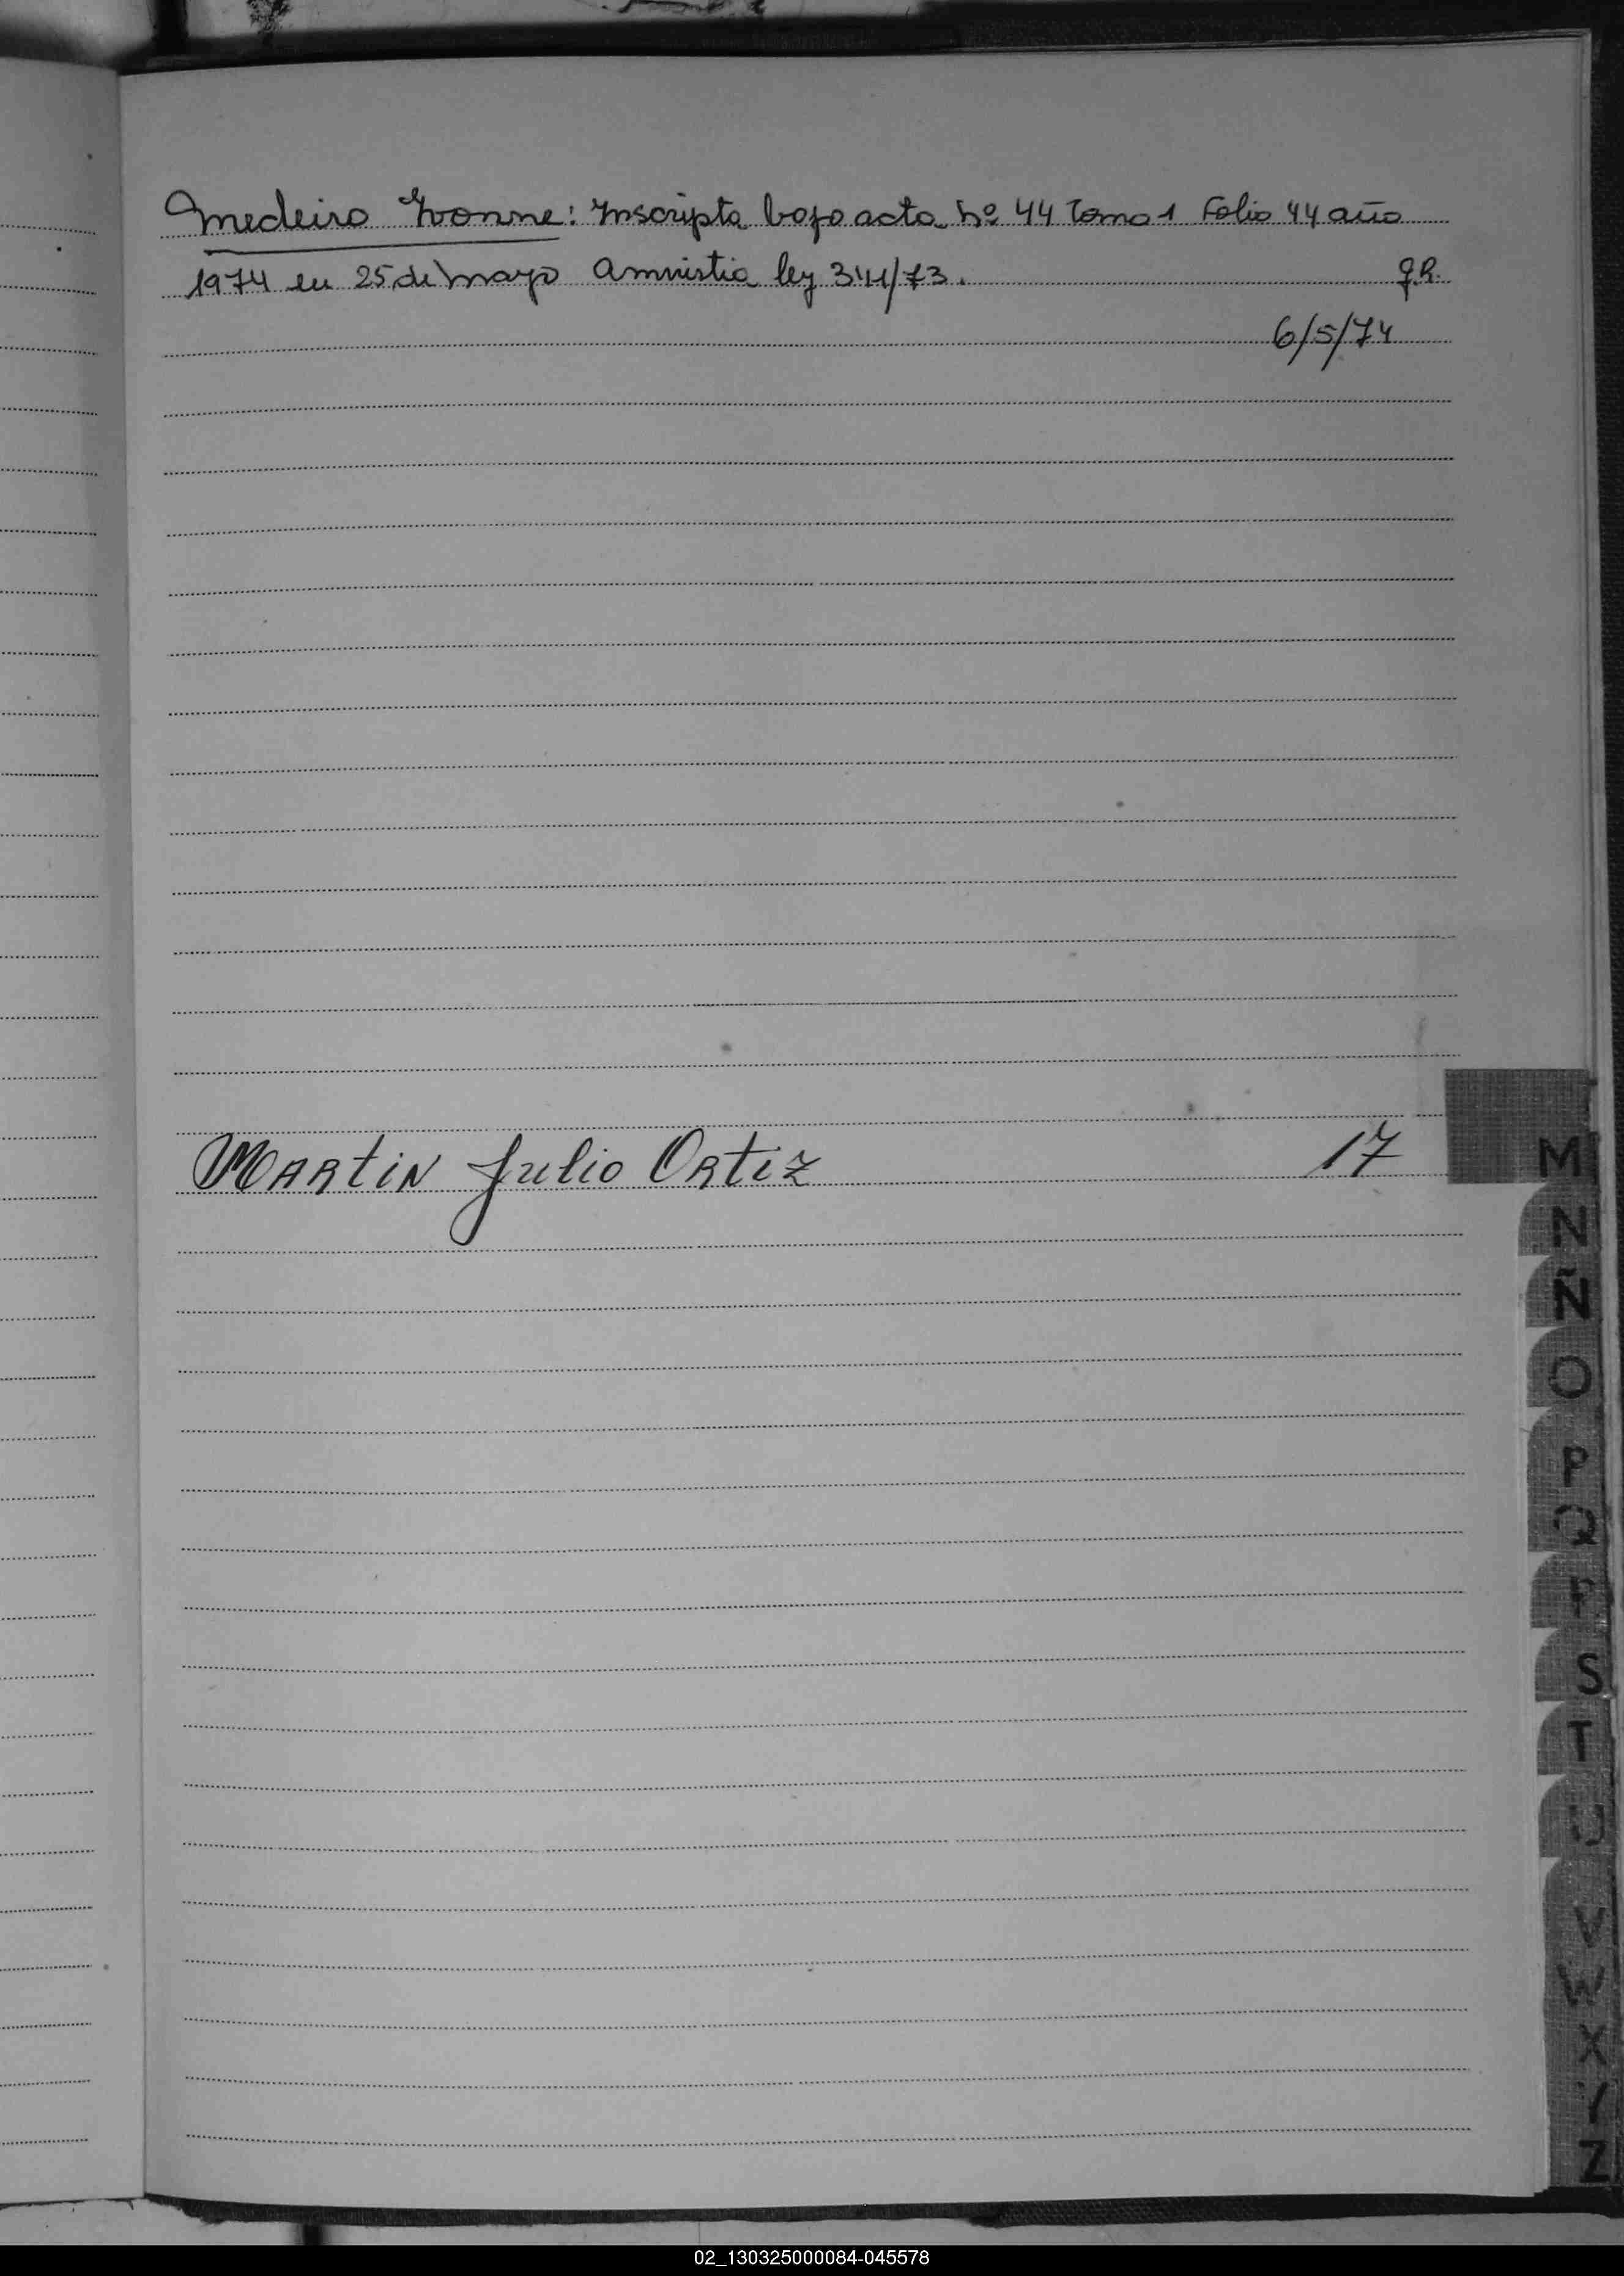 Medeiro Yvonne: Inscripta bajo acta nº 44 Tomo 1 Folio 44 año
1974 en 25 de mayo Amnistia ley 3411/73.
6/5/74
MARTIN Julio ORTIZ 17
M
N
Ñ
O
P
Q
R
S
T
U
V
W
X
Y
Z
02_130325000084-045578